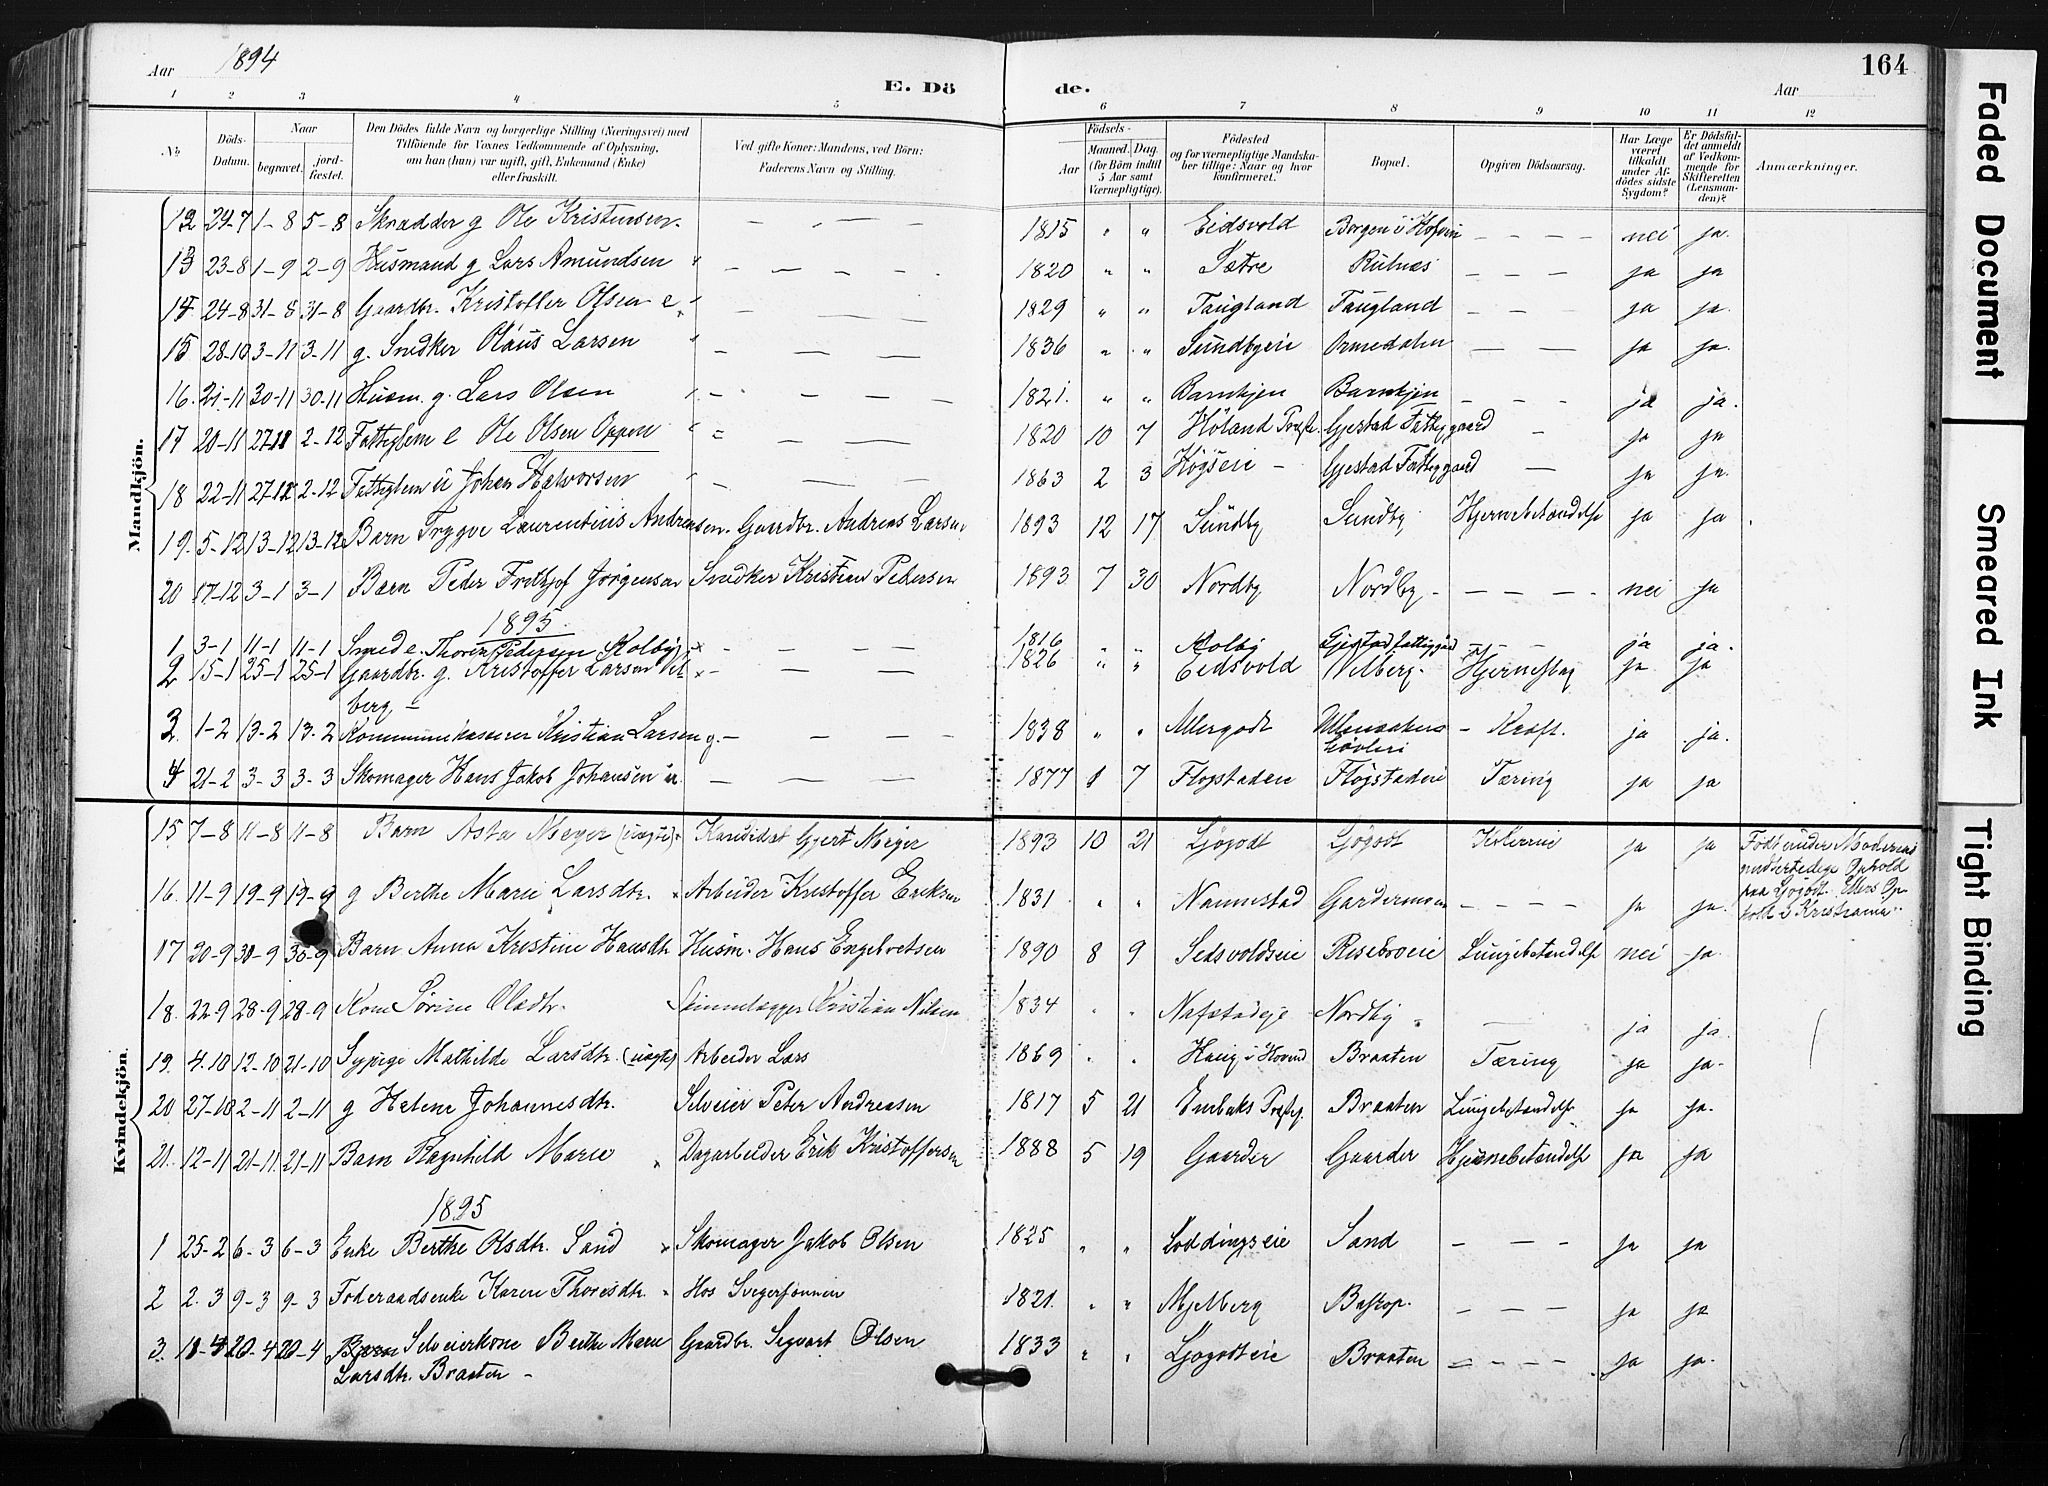 Aar 1894
E. Dö de.
Aar
164
1 2 3 4 5 6 7 8 9 10 11 12
No. Döds-Datum. Naar begravet. jord-fæstet. Den Dödes fulde Navn og borgerlige Stilling (Næringsvei) med Tilföiende for Voxnes Vedkommende af Oplysning, om han (hun) var ugift, gift, Enkemand (Enke) eller fraskilt. Ved gifte Koner: Mandens, ved Börn: Faderens Navn og Stilling. Födsels- Aar Maaned. Dag. (for Börn indtil 5 Aar samt Værnepligtige). Födested og for værnepligtige Mandska-ber tillige: Naar og hvor konfirmeret. Bopæl. Opgiven Dödsaarsag. Har Læge været tilkaldt under Af-dödes sidste Sygdom? Er Dödsfal-det anmeldt af Vedkom-mende for Skifteretten (Lensman-den)? Anmærkninger.
Mandkjön.
12 29-7 1-8 5-8 Skrædder g Ole Kristensen - - - 1815 " " Eidsvold Borgen i Hofvin - - - - nei ja.
13 23-8 1-9 2-9 Husmand g Lars Amundsen " - - - - 1820 " " Sætre Rulnæs - - - ja ja
14 24-8 31-8 31-8 Gaardbr. Kristoffer Olsen e " - - - 1829 " " Taugland Taugland - - - ja ja.
15 28-10 3-11 3-11 g. Snedker Olaus Larsen " - - - 1836 " " Sundbyeie Ormedalen - - - ja ja.
16. 21-11 30-11 30-11 Husm. g. Lars Olsen - - - - 1821. " " Barnkjen Barnkjen - - - ja ja.
17 20-11 27-11 2-12 Fattiglem e Ole Olsen Oppen " = - - 1820 10 7 Höland Præstg. Gjestad Fattiggaard - ja ja
18 22-11 27-11 2-12 Fattiglem u Johan Halvorsen - - - 1863 2 3 Högseie - Gjestad Fattiggaard - ja ja.
19. 5-12 13-12 13-12 Barn Trygve Laurentius Andreasen. Gaardbr. Andreas Larsen 1893 12 17 Sundby Sundby Hjernebetændelse ja ja
20 17-12 3-1 3-1 Barn Peder Frithjof Jörgensen Snedker Kristian Petersen 1893 7 30 Nordby Nordby - - - - nei ja
1895.
1 3-1 11-1 11-1 Smed e. Thoren Pedersen Kolby " - - - 1816 " " Kolby Gjestad fattiggård - - ja ja.
2 15-1 25-1 25-1 Gaardbr. g. Kristoffer Larsen Vil- " - - - 1826 " " Eidsvold Vilberg. Hjerneslag ja ja
berg -
3 1-2 13-2 13-2 Kommunekasserer Kristian Larsen g. - - - - 1838 " " Allergodt Ullensakers - Kræft. ja ja.
4 21-2 3-3 3-3 Skomager Hans Jakob Johansen u. - - - 1877 1 7 Flogstadeie Flogstadeie Tæring ja ja
Kvindekjön.
15 7-8 11-8 11-8 Barn Asta Meyer (uægte) " Kandidat Gjert Meyer 1893 10 21 Ljögodt Ljögodt ja ja Födt under Moderens
midlertidige Ophold
paa Ljögodt. Ellers Op-
hold i Kristiania
16. 11-9 19-9 19-9 g Berthe Marie Larsdtr. " Arbeider Kristoffer Eriksen 1831 " " Nannestad Gardermoen - - - - ja ja.
17 20-9 30-9 30-9 Barn Anna Kristine Hansdtr Husm. Hans Engelvetsen 1890 8 9 Sedsvoldseie Risebroeie Lungebetændelse nei ja.
18. 22-9 28-9 28-9 Kone Sörine Olsdtr. Kristian Nilsen 1834 " " Nafstadeje Nordby " - ja ja.
19. 4.10 12-10 21-10 Sypige Mathilde Larsdtr. (uægte) Arbeider Lars 1869 " " Haug i Hovind Braaten Tæring ja ja.
20 27-10 2-11 2-11 g Helene Johannesdtr. Selveier Peter Andreasen 1817 5 21 Enebaks Præstg. Braaten Lungebetændelse ja ja.
21. 12-11 21-11. 21-11 Barn Ragnhild Marie " Dagarbeider Erik Kristoffersen 1888 5 19 Gaarder Gaarder Hjernebetændelse ja ja
1895
1 25-2 6-3 6-3 Enke Berthe Olsdtr. Sand " Skomager Jakob Olsen 1825 " " Loddingseie Sand - - - ja ja
2 2.3 9-3 9-3 Föderaadsenke Karen Thoresdtr. " Hos Svigersönnen 1821. " " Mjelberg - - - - ja ja
3. 10-4 20-4 20-4 Selveierkone Berthe Marie Gaardbr. Sigvart Olsen 1833 " " Ljøgodteie Braaten - - - - ja ja.
Larsdtr. Braaten -
Faded Document
Smeared Ink
Tight Binding